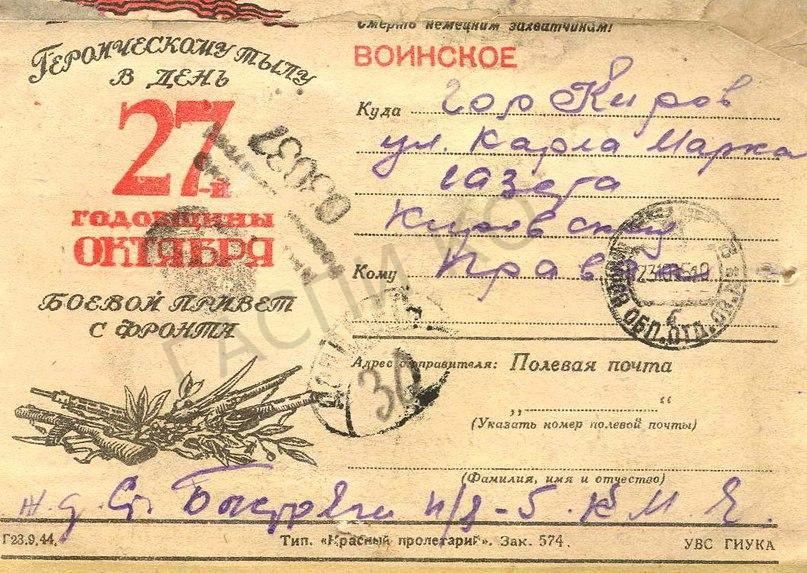 Смерть немецким захватчикам!
Героическому тылу
в день
27-й
годовщины
Октября
Боевой привет
с фронта
ВОИНСКОЕ
Куда гор Киров
ул. Карла Маркса
газета
Кировская
Кому Правда
Адрес отправителя: Полевая почта
„ “
(Указать номер полевой почты)
(Фамилия, имя и отчество)
ж. д. Ст. Быстряги п/я-5. К М. Е.
Г23.9.44. Тип. «Красный пролетарий». Зак. 574. УВС ГИУКА
03037
30
ОБЛ.ОТД.СВ.
ГАСПИ КО